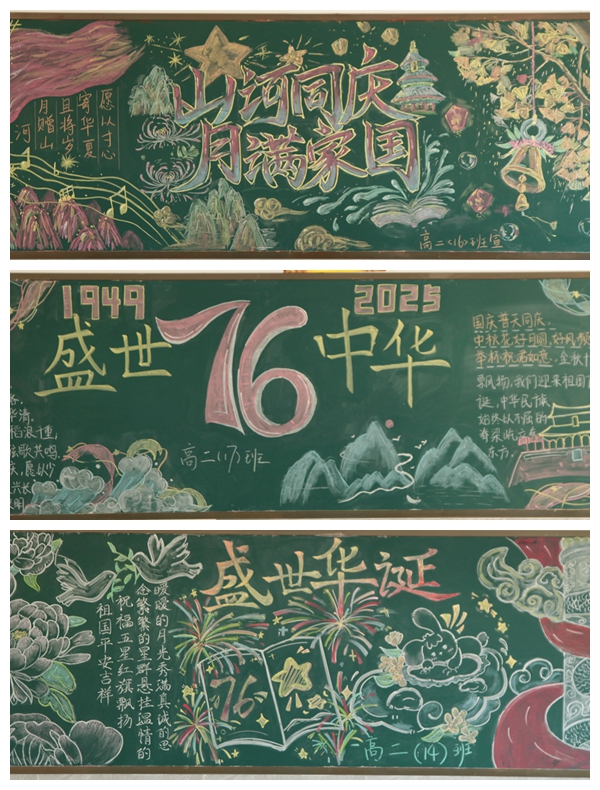 愿以寸心
寄华夏
且将岁
月赠山
河
山河同庆
月满家国
高二(16)班宣
1949
2025
盛世
76
中华
高二(17)班
华清,
稻浪重,
歌共鸣
庆,愿以少
兴长
国庆普天同庆,
中秋花好月圆,好风
举杯祝福如意.金秋十
飘扬,我们迎来祖国
诞,中华民族
始终以不屈的
奇采屹立
东方.
盛世华诞
暖暖的月光秀满真诚的思
念繁繁的星群悬挂温情的
祝福五星红旗飘扬
祖国平安吉祥
76
高二(14)班